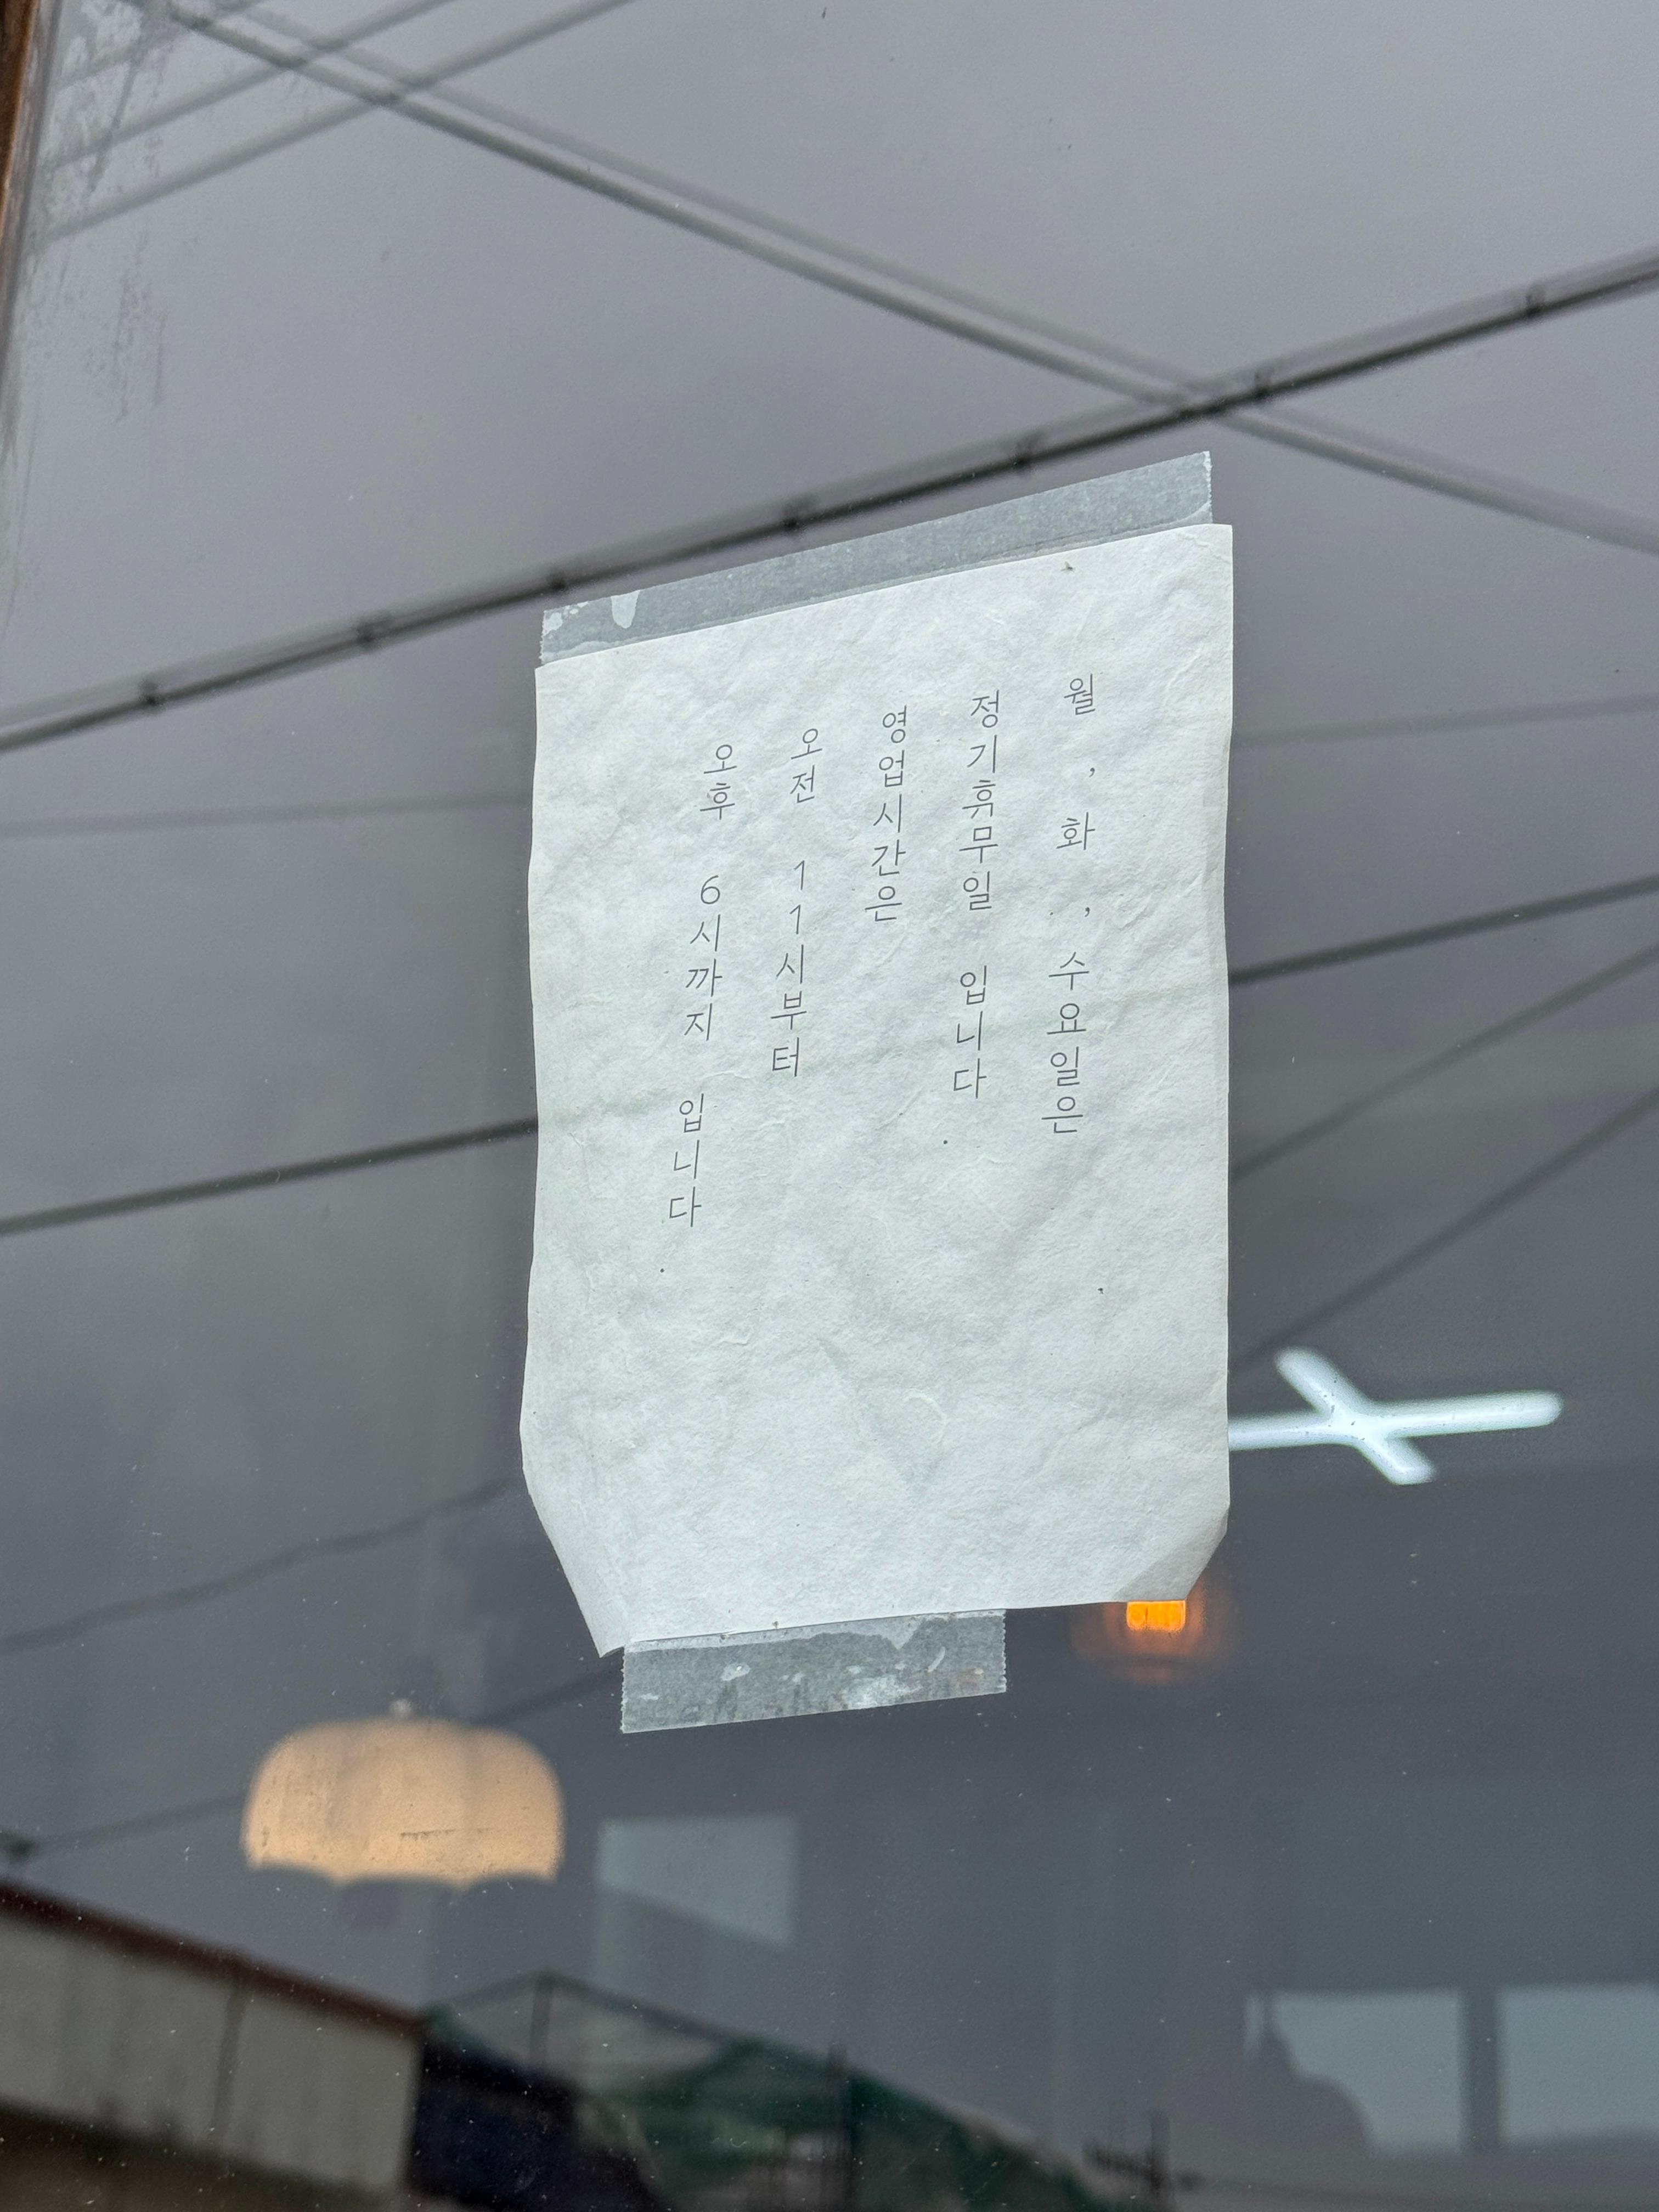 월, 화, 수요일은
정기휴무일 입니다.
영업시간은
오전 11시부터
오후 6시까지 입니다.